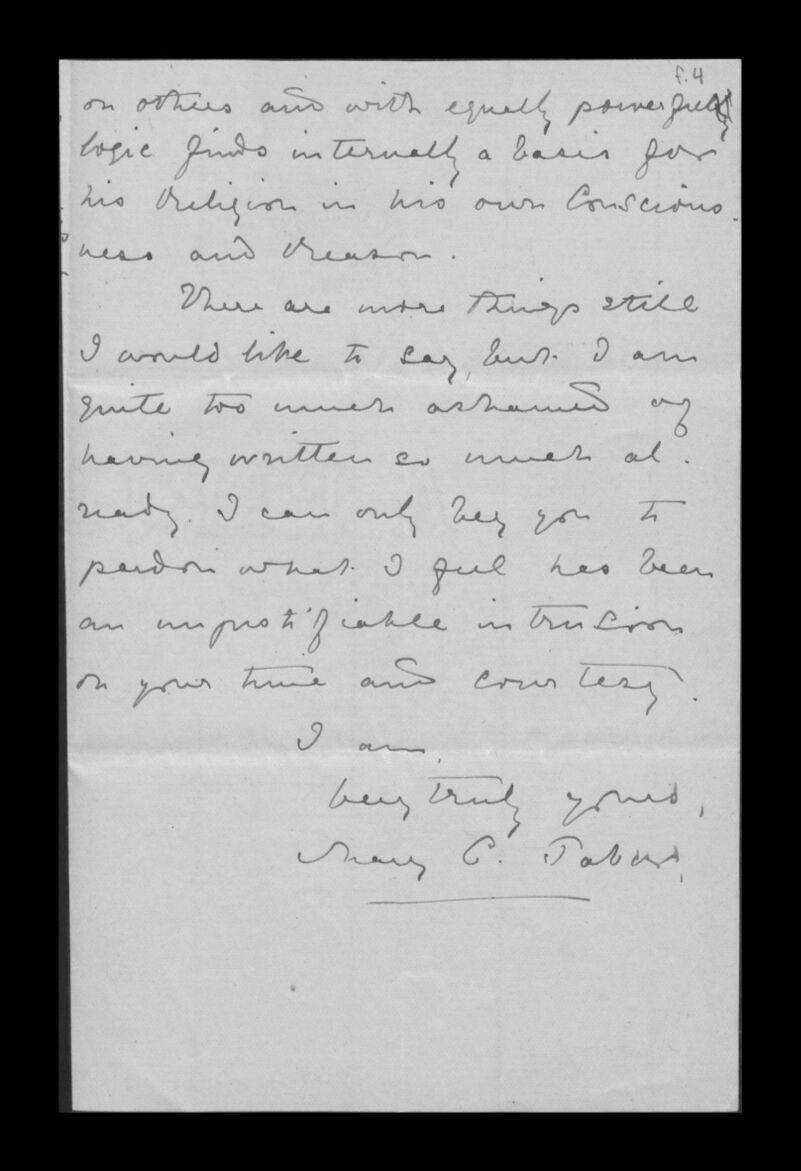 f.4
on others and with equally powerful
logic finds internally a basis for
his Religion in his own Conscious-
ness and Reason.
There are more things still
I would like to say, but I am
quite too much ashamed of
having written so much al-
ready. I can only beg you to
pardon what I feel has been
an unjustifiable intrusion
on your time and courtesy.
I am,
Very truly yours,
Mary C. Taber,